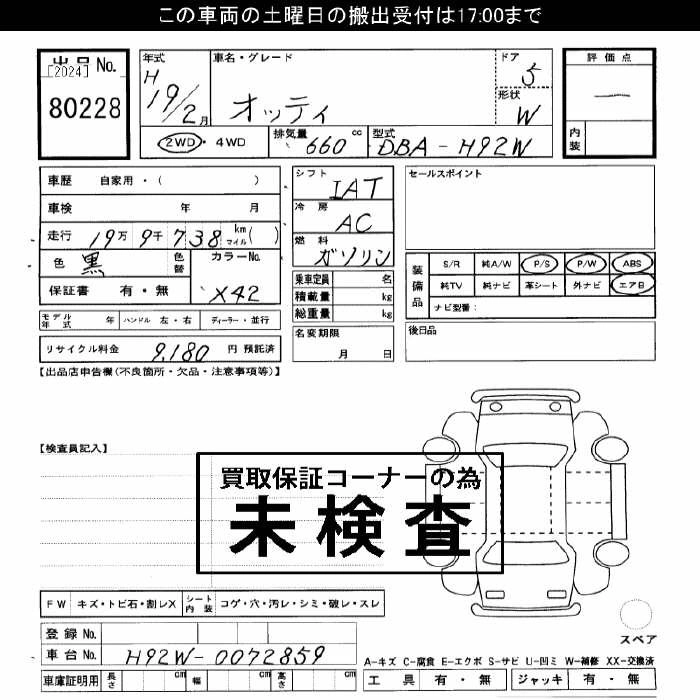 この車両の土曜日の搬出受付は17:00まで
出品No.
[2024]
80228
年式
H
19/2月
車名・グレード
オッティ
ドア
5
形状
W
評価点
―
内装
2WD・4WD
排気量 660 cc
型式 DBA-H92W
車歴 自家用・( )
車検 年 月
走行 19万9千738 km マイル( )
色 黒 色替 カラーNo.
X42
保証書 有・無
モデル年式 年 ハンドル 左・右 ディーラー・並行
リサイクル料金 9,180 円 預託済
シフト
IAT
冷房
AC
燃料
ガソリン
乗車定員 名
積載量 kg
総重量 kg
名変期限
月 日
セールスポイント
装備品
S/R 純A/W P/S P/W ABS
純TV 純ナビ 革シート 外ナビ エアB
ナビ型番:
後日品
【出品店申告欄(不良箇所・欠品・注意事項等)】
【検査員記入】
買取保証コーナーの為
未検査
FW キズ・トビ石・割レX シート内装 コゲ・穴・汚レ・シミ・破レ・スレ
登録No.
車台No. H92W-0072859
車庫証明用 長さ cm 幅 cm 高さ cm
スペア
A-キズ C-腐食 E-エクボ S-サビ U-凹ミ W-補修 XX-交換済
工具 有・無 ジャッキ 有・無